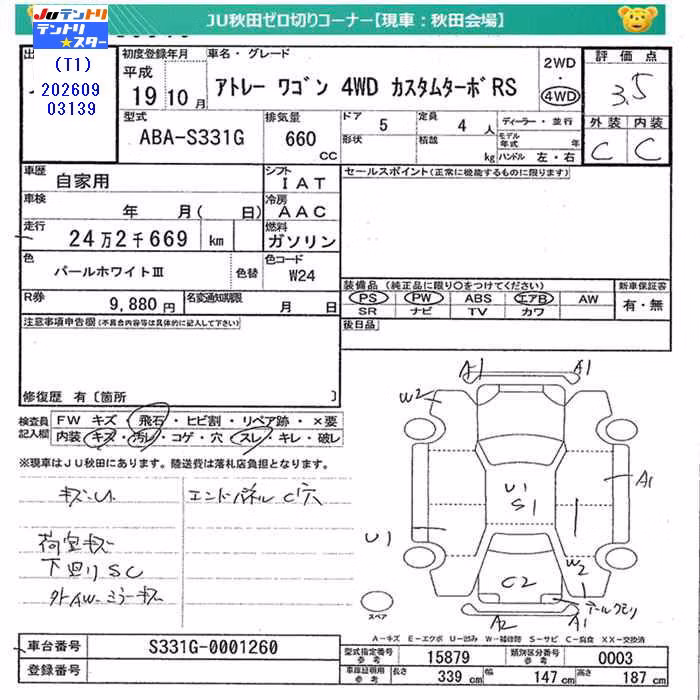 JU秋田ゼロ切りコーナー[現車:秋田会場]
JUテントリ
テントリ★スター
(T1)
202609
03139
初度登録年月
平成
19年10月
車名・グレード
アトレー ワゴン 4WD カスタムターボRS
2WD
・
4WD
評価点
3.5
型式
ABA-S331G
排気量
660
CC
ドア
5
定員
4人
形状
積載
kg
ディーラー・並行
モデル年式 年
ハンドル 左・右
外装 内装
C C
車歴
自家用
シフト
IAT
セールスポイント(正常に機能するものに限ります)
車検
年 月( 日)
冷房
AAC
走行
24万2千669 km
燃料
ガソリン
色
パールホワイトⅢ
色替
色コード
W24
装備品 (純正品に限り○をつけてください)
新車保証書
PS PW ABS エアB AW
SR ナビ TV カワ
有・無
R券
9,880円
名変通知期限
月 日
後日品
注意事項申告欄(不具合内容等は具体的に記入して下さい)
修復歴 有〔箇所 〕
検査員
記入欄
FW キズ・飛石・ヒビ割・リペア跡・×要
内装・キズ・汚レ・コゲ・穴・スレ・キレ・破レ
※現車はJU秋田にあります。陸送費は落札店負担となります。
キズ・U
エンドパネル C穴
荷室キズ
下廻りSC
外AW・ミラーキズ
A1
A1
W2
A1
U1
S1
U1
W2
C2
テールクモリ
A2
A1
スペア
A-キズ E-エクボ U-凹み W-補修跡 S-サビ C-腐食 XX-交換済
車台番号
S331G-0001260
登録番号
型式指定番号
参考
15879
類別区分番号
参考
0003
車庫証明用
参考
長さ
339 cm
幅
147 cm
高さ
187 cm